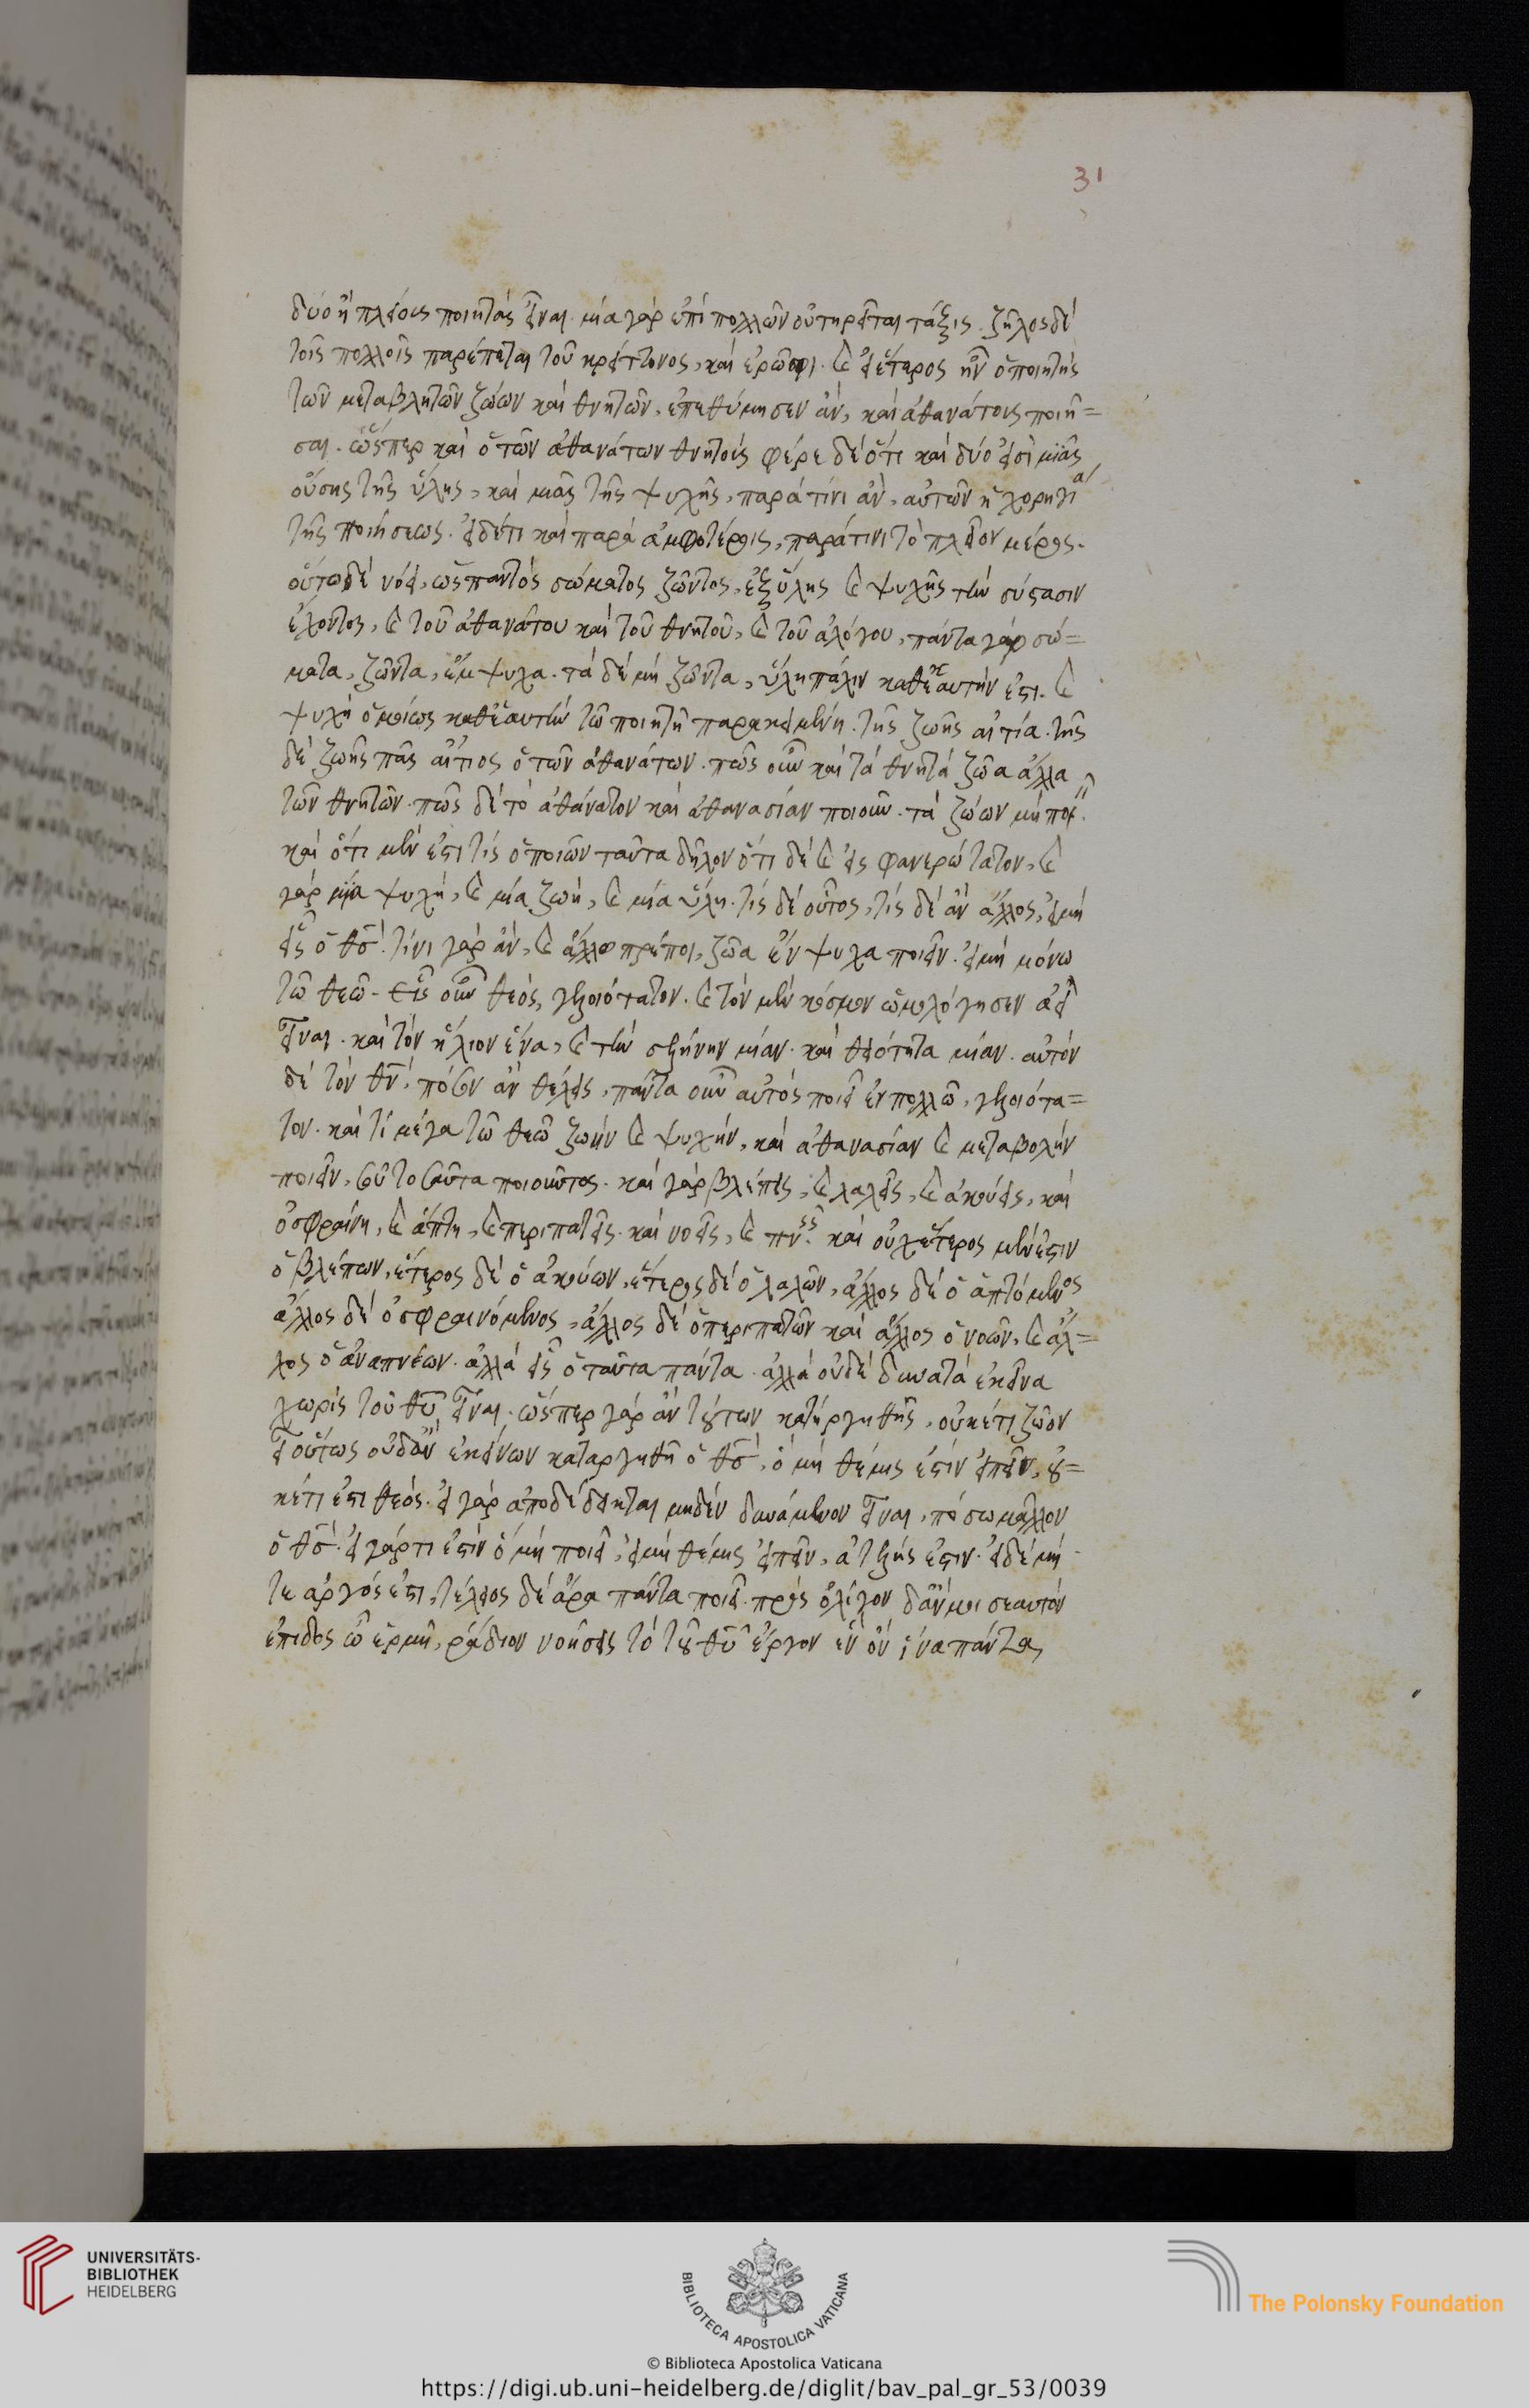 31
δύο ἢ πλείους ποιητὰς εἶναι. μία γὰρ ἐπὶ πολλῶν οὐ τηρεῖται τάξις. ζῆλος δὲ
τοῖς πολλοῖς παρέπεται τοῦ κρείττονος, καὶ ἐρῶσι. καὶ εἰ ἕτερος ἦν ὁ ποιητὴς
τῶν μεταβλητῶν ζώων καὶ θνητῶν, ἐπεθύμησεν ἂν, καὶ ἀθανάτους ποιῆ=
σαι. ὥσπερ καὶ ὁ τῶν ἀθανάτων θνητοὺς φέρε δὲ ὅτι καὶ δύο εἰσὶ μιᾶς
οὔσης τῆς ὕλης, καὶ μιᾶς τῆς ψυχῆς, παρὰ τίνι ἂν, αὐτῶν ἡ χορηγία
τῆς ποιήσεως. εἰ δέ τι καὶ παρὰ ἀμφοτέροις, παρὰ τίνι τὸ πλεῖον μέρος.
οὕτω δὲ νόει, ὡς παντὸς σώματος ζῶντος, ἐξ ὕλης καὶ ψυχῆς τὴν σύστασιν
ἔχοντος, καὶ τοῦ ἀθανάτου καὶ τοῦ θνητοῦ, καὶ τοῦ ἀλόγου, πάντα γὰρ σώ=
ματα, ζῶντα, ἔμψυχα. τὰ δὲ μὴ ζῶντα, ὕλη πάλιν καθ' ἑαυτήν ἐστι. καὶ
ψυχὴ ὁμοίως καθ' ἑαυτὴν τῷ ποιητῇ παρακειμένη. τῆς ζωῆς αἰτία. τῆς
δὲ ζωῆς πᾶς αἴτιος ὁ τῶν ἀθανάτων. πῶς οὖν καὶ τὰ θνητὰ ζῶα ἄλλα
τῶν θνητῶν. πῶς δὲ τὸ ἀθάνατον καὶ ἀθανασίαν ποιοῦν. τὰ ζώων μὴ ποιεῖ.
καὶ ὅτι μὲν ἐστι τίς ὁ ποιῶν ταῦτα δῆλον ὅτι δὲ καὶ εἷς φανερώτατον, καὶ
γὰρ μία ψυχή, καὶ μία ζωή, καὶ μία ὕλη. τίς δὲ οὗτος, τίς δὲ ἂν ἄλλος, εἰ μὴ
εἷς ὁ θσ. τίνι γὰρ ἂν, καὶ ἄλλῳ πρέποι, ζῶα ἔνψυχα ποιεῖν. εἰ μὴ μόνω
τῶ θεῶ. εἷς οὖν θεός, γελοιότατον. καὶ τὸν μὲν κόσμον ὡμολόγησεν ἀεὶ
εἶναι. καὶ τὸν ἥλιον ἕνα, καὶ τὴν σελήνην μίαν. καὶ θειότητα μίαν. αὐτὸν
δὲ τὸν θν, πόσον ἂν θέλεις, πάντα οὖν αὐτὸς ποιεῖ ἐν πολλῶ, γελοιότα=
τον. καὶ τί μέγα τῶ θεῶ ζωὴν καὶ ψυχήν, καὶ ἀθανασίαν καὶ μεταβολὴν
ποιεῖν, σοῦ τοσαῦτα ποιοῦντος. καὶ γὰρ βλέπεις, καὶ λαλεῖς, καὶ ἀκούεις, καὶ
ὀσφραίνη, καὶ ἅπτη, καὶ περιπατεῖς. καὶ νοεῖς, καὶ πνεῖς. καὶ οὐχ ἕτερος μέν ἐστιν
ὁ βλέπων, ἕτερος δὲ ὁ ἀκούων, ἕτερος δὲ ὁ λαλῶν, ἄλλος δὲ ὁ ἁπτόμενος
ἄλλος δὲ ὀσφραινόμενος, ἄλλος δὲ ὁ περιπατῶν καὶ ἄλλος ὁ νοῶν, καὶ ἄλ=
λος ὁ ἀναπνέων. ἀλλὰ εἷς ὁ ταῦτα πάντα. ἀλλὰ οὐδὲ δυνατὰ ἐκεῖνα
χωρὶς τοῦ θυ εἶναι. ὥσπερ γὰρ ἂν τούτων καταργηθῆς, οὐκέτι ζῶον
εἶ οὕτως οὐδ' ἂν ἐκείνων καταργηθῆ ὁ θσ, ὃ μὴ θέμις ἐστὶν εἰπεῖν, οὐ=
κέτι ἐστὶ θεός. εἰ γὰρ ἀποδέδεικται μηδὲν δυνάμενον εἶναι, πόσω μᾶλλον
ὁ θσ. εἰ γάρ τι ἐστὶν ὃ μὴ ποιεῖ, εἰ μὴ θέμις εἰπεῖν, ἀτελής ἐστιν. εἰ δὲ μή
τε ἀργός ἐστι, τέλειος δὲ ἄρα πάντα ποιεῖ. πρὸς ὀλίγον δ' ἄν μοι σεαυτὸν
ἐπιδὸς ὦ ἑρμῆ, ῥάδιον νοήσεις τὸ τοῦ θυ ἔργον ἓν ὂν ἵνα πάντα
UNIVERSITÄTS-
BIBLIOTHEK
HEIDELBERG
BIBLIOTECA APOSTOLICA VATICANA
The Polonsky Foundation
© Biblioteca Apostolica Vaticana
https://digi.ub.uni-heidelberg.de/diglit/bav_pal_gr_53/0039